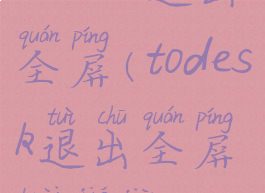 quán píng
全屏(todes
tuì chū quán píng
k退出全屏